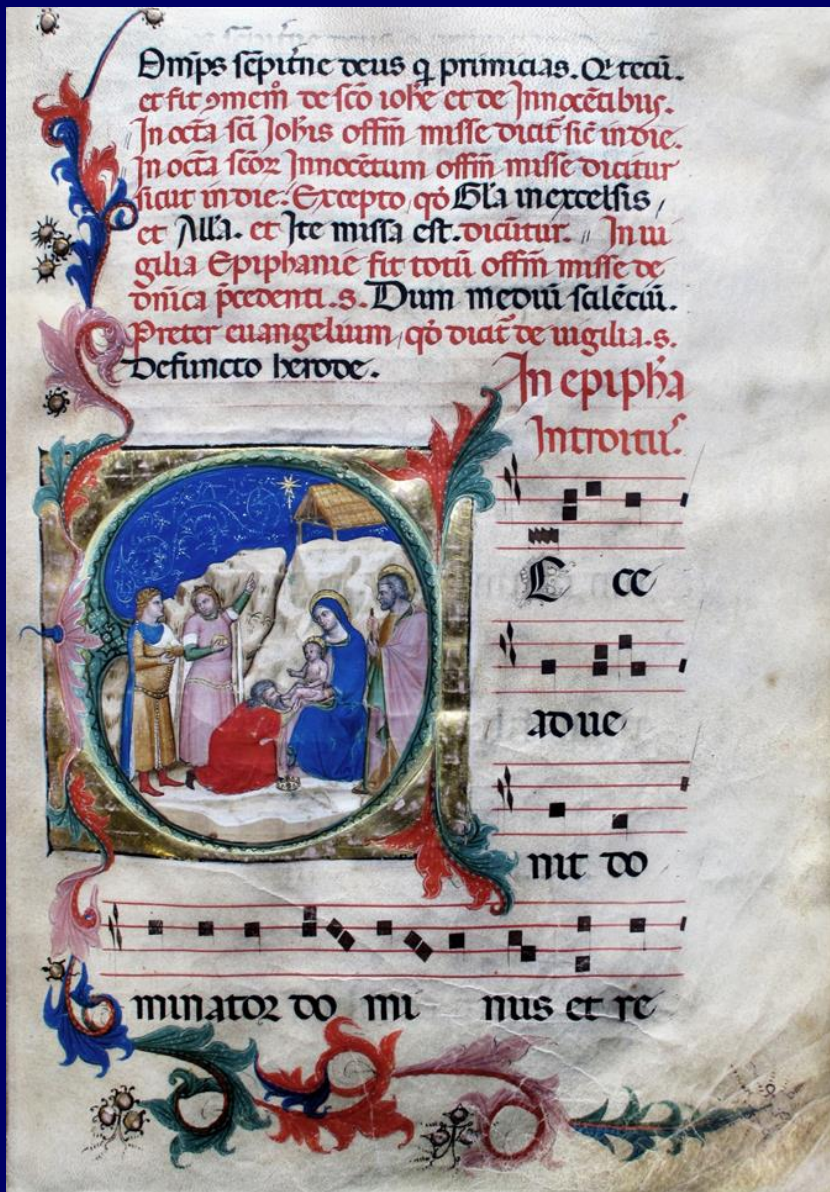 Om̅ps se̅pit̅ne deus q̅ primicias. Q̅ tecu̅.
et fit ꝯmem̅ de sc̅o ioh̅e et de Innoce̅tibus.
In octa̅ sc̅i Joh̅is offm̅ misse dicit̅ sic̅ in die.
In octa̅ sc̅oꝝ Innoce̅tum offm̅ misse dicitur
sicut in die. Excepto qo̅ Gl̅a in excelsis
et All̅a. et Ite missa est. dicitur. In ui
gilia Epiphanie fit totu̅ offm̅ misse de
dn̅ica p̅cedenti. s. Dum mediu̅ sile̅ciu̅.
Preter euangelium, qo̅ dicit̅ de uigilia. s.
Defuncto herode.
In epiph̅a
Introitus.
E ce
adue
nit do
minator do mi nus et re